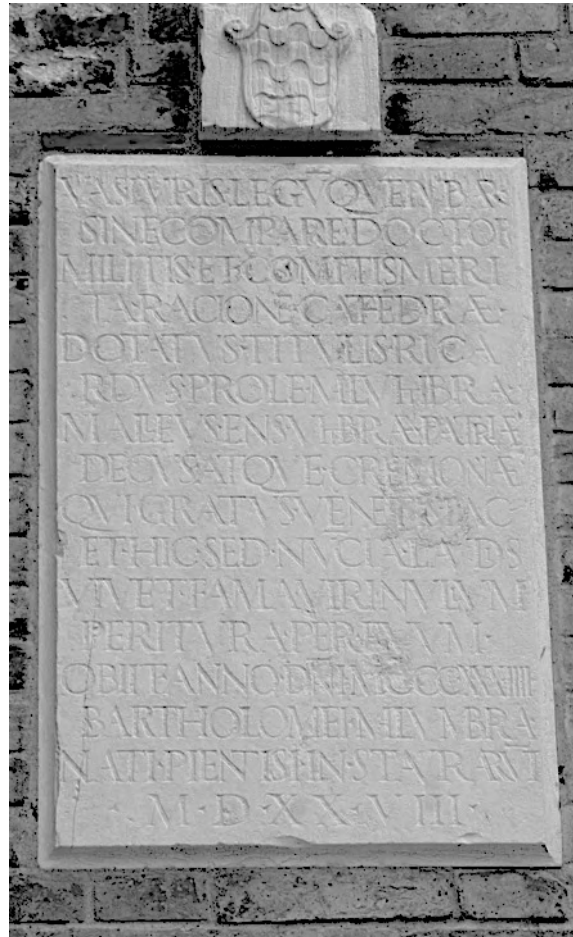 VAS·IVRIS·LEGV̄·QVE IVBAR
SINE COMPARE·DOCTOR
MILITIS·ET·COMITIS MERI
TA·RACIONE·CATEDRÆ·
DOTATVS·TITVLIS·RICA
RDVS·PROLE·MILVHBRA·
MALLEVS·ENSVHBRÆ·PATRIÆ
DECVS·ATQVE·CREMONÆ
QVI GRATVS·VENETIS AC
ET·HIC·SED·NVCIA·LAVDIS
VIVET·FAMA·VIRI NVLVM
PERITVRA·PER ÆVVM·
OBIIT·ANNO·DNI·MCCCXXXIIII
BARTHOLOMEI·MILVMBRA
NATI·PIENTISI·IN·STAVRARVT
·M·D·X·X·VIII·